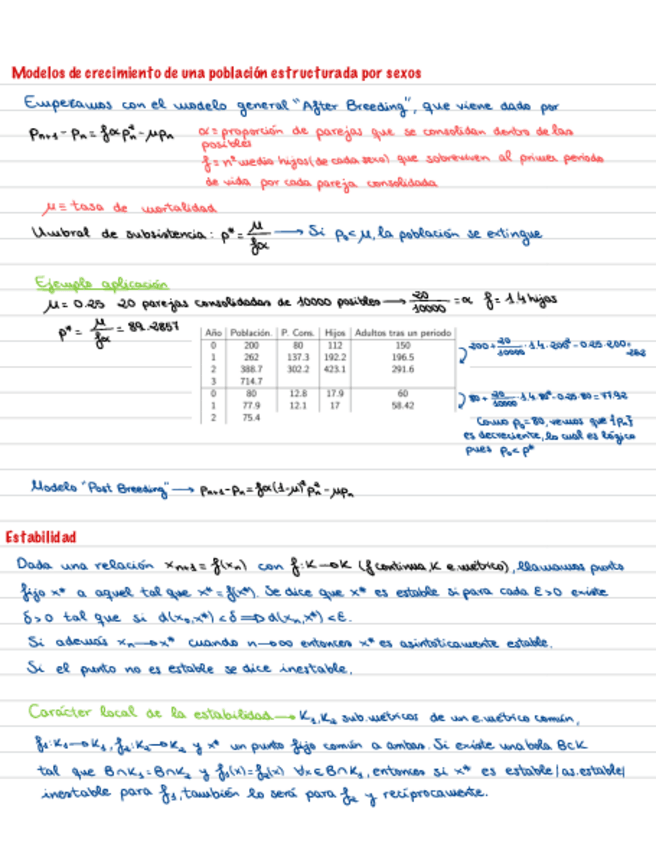 Modelos de crecimiento de una población estructurada por sexos
Empezamos con el modelo general "After Breeding", que viene dado por
Pn+1 - Pn = fαpn² - μpn
α = proporción de parejas que se consolidan dentro de las posibles
f = nº medio hijos (de cada sexo) que sobreviven al primer periodo
de vida por cada pareja consolidada
μ ≡ tasa de mortalidad
Umbral de subsistencia: p* = μ/fα → Si p₀ < μ, la población se extingue
Ejemplo aplicación
μ = 0.25 20 parejas consolidadas de 10000 posibles → 20/10000 = α f = 1.4 hijos
p* = μ/fα = 89.2857
Año Población. P. Cons. Hijos Adultos tras un periodo
0 200 80 112 150
1 262 137.3 192.2 196.5
2 388.7 302.2 423.1 291.6
3 714.7
0 80 12.8 17.9 60
1 77.9 12.1 17 58.42
2 75.4
200 + 20/10000 · 1.4 · 200² - 0.25 · 200 = 262
80 + 20/10000 · 1.4 · 80² - 0.25 · 80 = 77.92
Como p₀ = 80, vemos que {pn}
es decreciente, lo cual es lógico
pues p₀ < p*
Modelo "Post Breeding" → Pn+1 - Pn = fα(1-μ)²pn² - μpn
Estabilidad
Dada una relación xn+1 = f(xn) con f: K → K (f continua, K e. métrico), llamamos punto
fijo x* a aquel tal que x* = f(x*). Se dice que x* es estable si para cada ε>0 existe
δ>0 tal que si d(x₀,x*) < δ ⇒ d(xn,x*) < ε.
Si además xn → x* cuando n → ∞ entonces x* es asintóticamente estable.
Si el punto no es estable se dice inestable.
Carácter local de la estabilidad → K₁, K₂ sub. métricos de un e. métrico común,
f₁: K₁ → K₁, f₂: K₂ → K₂ y x* un punto fijo común a ambas. Si existe una bola B⊂K
tal que B∩K₁ = B∩K₂ y f₁(x) = f₂(x) ∀x∈B∩K₁, entonces si x* es estable/as. estable/
inestable para f₁, también lo será para f₂ y recíprocamente.